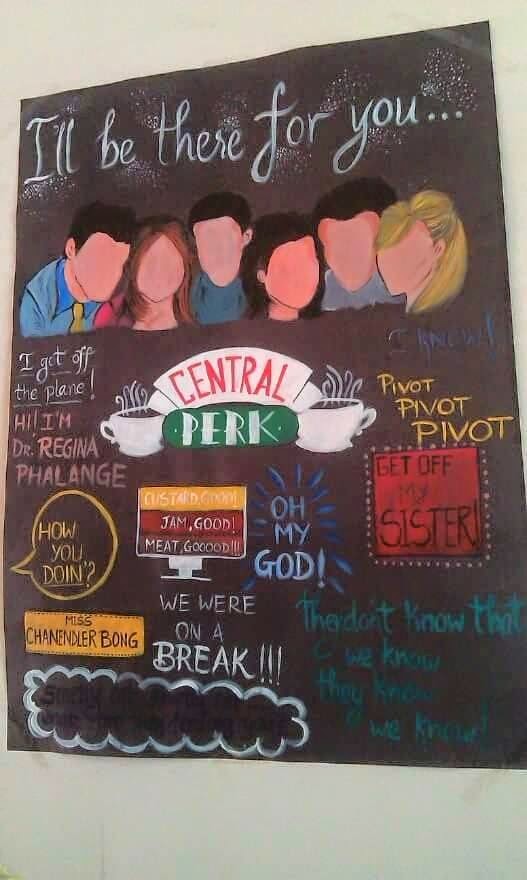 I'll be there for you...
I KNEW!
I got off
the plane!
CENTRAL
PERK
PIVOT
PIVOT
PIVOT
HI! I'M
DR. REGINA
PHALANGE
GET OFF
MY
SISTER!
CUSTARD, GOOD!
JAM, GOOD!
MEAT, GOOOOD!!!
OH
MY
GOD!
HOW
YOU
DOIN'?
WE WERE
ON A
BREAK!!!
MISS
CHANENDLER BONG
They don't know that
we know
they know
we know!